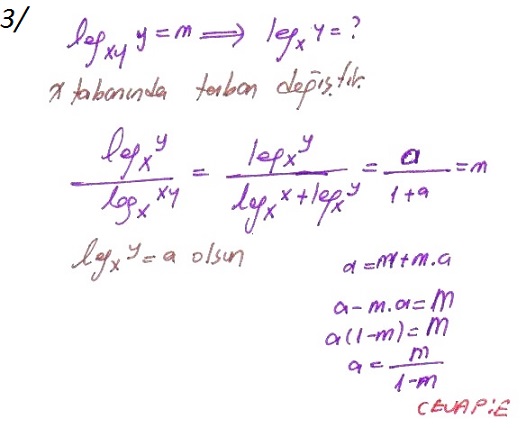 3/
log_xy y = m ⟹ log_x y = ?
x tabanında taban değiştir.
log_x y / log_x xy = log_x y / (log_x x + log_x y) = a / (1+a) = m
log_x y = a olsun
a = m + m.a
a - m.a = m
a(1-m) = m
a = m / (1-m)
CEVAP:E